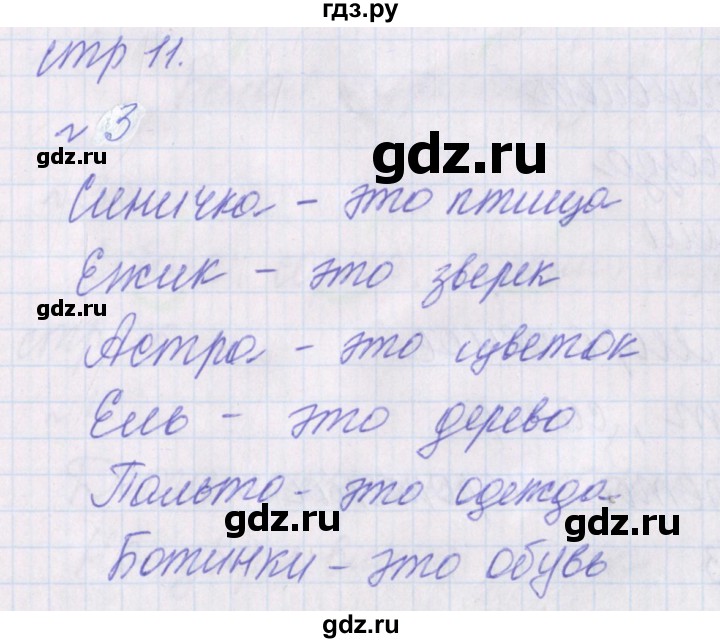 гдз.ру
стр 11.
№ 3
gdz.ru
gdz.ru
Синичка - это птица
Ежик - это зверек
gdz.ru
Астра - это цветок
Ель - это дерево
Пальто - это одежда
gdz.ru
gdz.ru
Ботинки - это обувь
gdz.ru